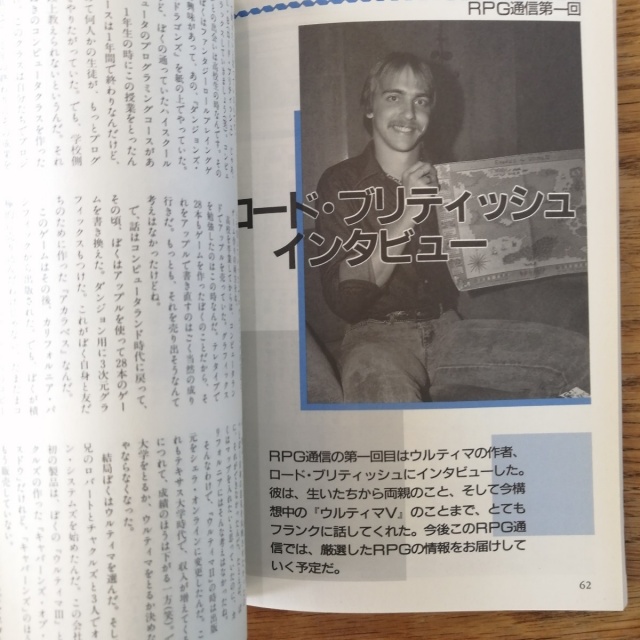 RPG通信第一回
ロード・ブリティッシュ
インタビュー
RPG通信の第一回目はウルティマの作者、
ロード・ブリティッシュにインタビューした。
彼は、生いたちから両親のこと、そして今構
想中の『ウルティマV』のことまで、とても
フランクに話してくれた。今後このRPG通
信では、厳選したRPGの情報をお届けして
いく予定だ。
62
ドラゴンズ』を紙の上でやっていた。
ど、ぼくの通っていたハイスクール
ュータのプログラミングコースがあ
1年生の時にこの授業をとったん
ースは1年間で終わりなんだけど、
て何人かの生徒が、もっとプログ
やりたがっていた。でも、学校側
上教えられないというんだ。それ
のコンピュータクラスを作った
を勉強したのはこの時なんだ。テレタイプで
28本もゲームを作ったぼくのことだから、そ
れをアップルで書き直すのはごく当然の成り
行きだ。もっとも、それを売り出そうなんて
考えはなかったけどね。
て、話はコンピュータランド時代に戻って、
その頃、ぼくはアップルを使って28本のゲー
ムを書き換えた。ダンジョン用に3次元グラ
フィックスもつけた。これがぼく自身と友だ
ちのために作った『アカラベス』なんだ。
このゲームはその後、カリフォルニア・パ
そんなわけで、『ウルティマII』の時は出版
元をシエラ・オンラインに変更したんだ。
れもテキサス大学時代で、収入が増えてくる
につれて、成績のほうは下がる一方(笑)で
大学をとるか、ウルティマをとるか決めな
やならなくなった。
結局ぼくはウルティマを選んだ。そし
兄のロバートとチャクルズと3人でオ
ン・システムズを始めたんだ。この会社
初の製品は、ぼくの『ウルティマIII』と
クルズの作った『キャバーンズ・オブ